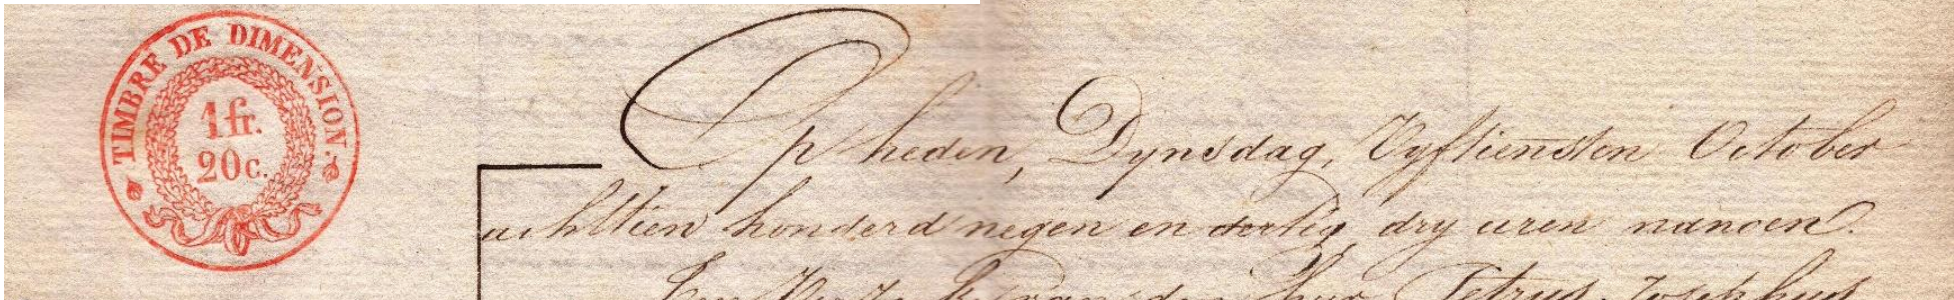 TIMBRE DE DIMENSION.
1 fr.
20 c.
Op heden, Dynsdag, Vyftiensten October
achttien honderd negen en dertig dry uren nanoen.
den heer Petrus Josephus